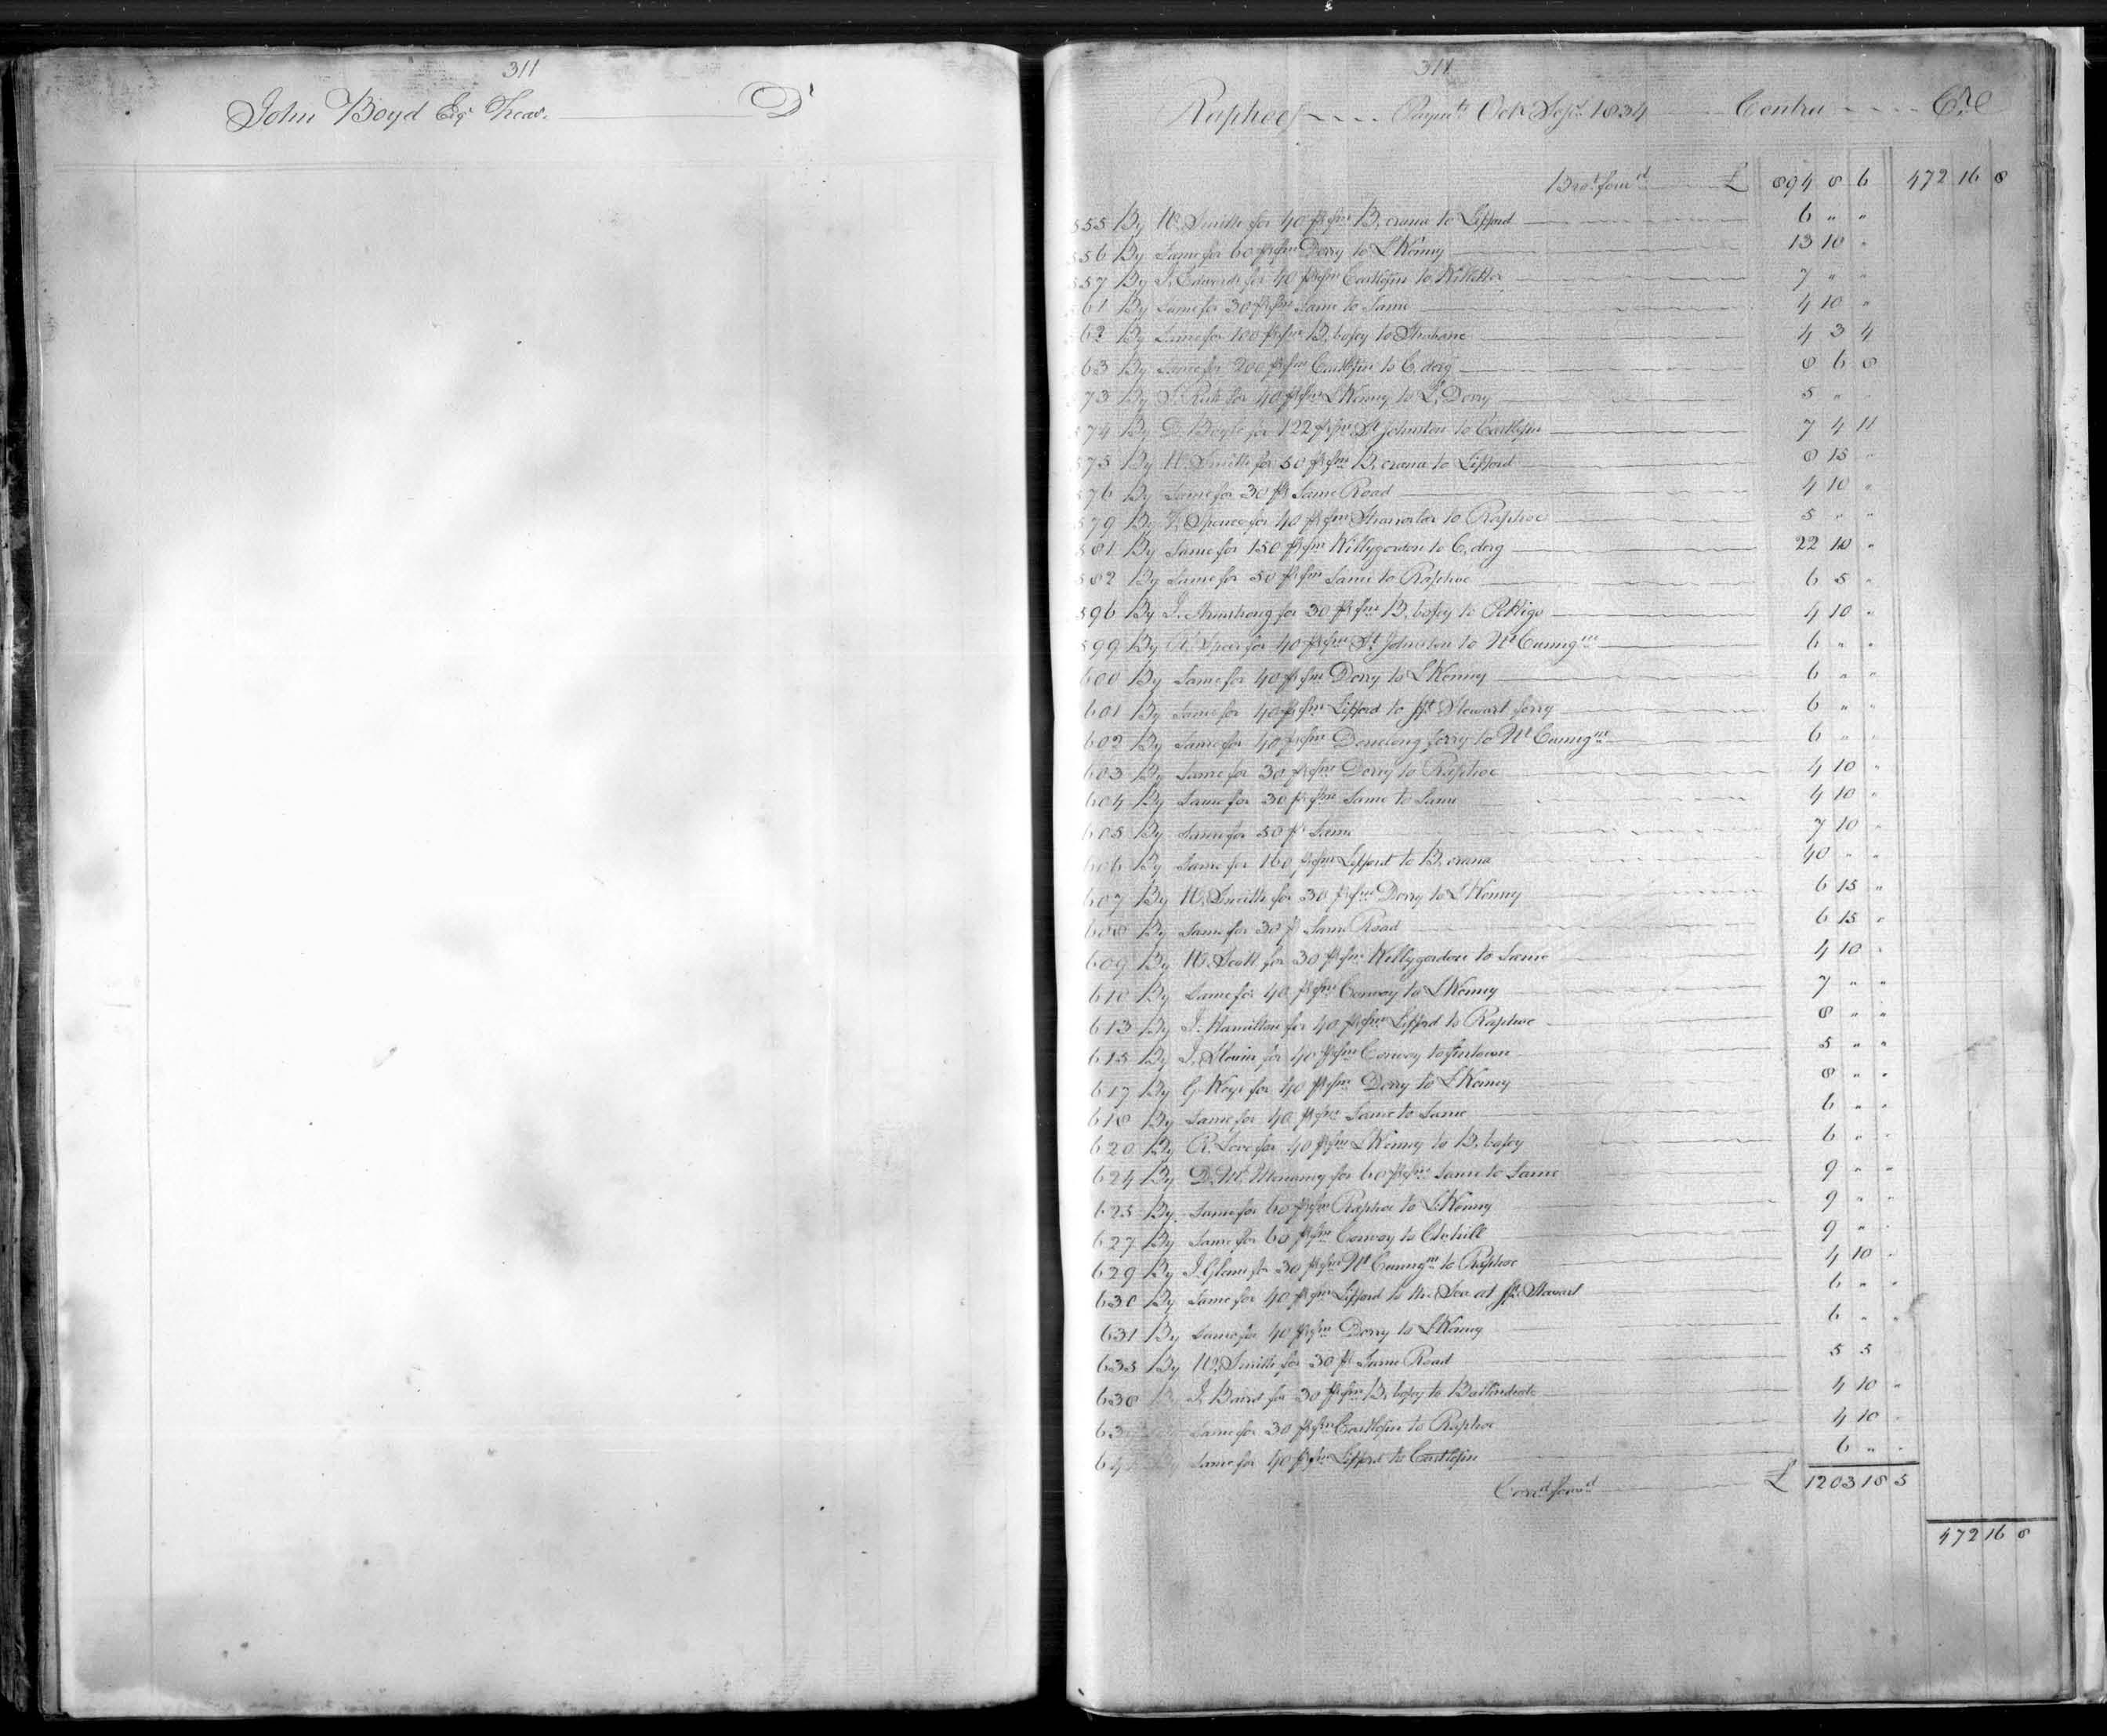 311
John Boyd Esqr Treasr. D^r
311
Raphoe Paymts Oct Sepr 1834 Contra C^r
Brot forwd £ 894 8 6 472 16 8
555 By W. Smith for 40 ps fm B. crana to Lifford 6 " "
556 By Same for 60 ps fm Derry to L Kenny 13 10 "
557 By J. Edwards for 40 ps fm Castlefin to Killetter 7 " "
561 By Same for 30 ps fm Same to Same 4 10 "
562 By Same for 100 ps fm B. bofey to Strabane 4 3 4
563 By Same for 200 ps fm Castlefin to C. derg 8 6 8
573 By for 40 ps fm L Kenny to L. Derry 5 " "
574 By D. Boyle for 122 ps fm St Johnston to Castlefin 7 4 11
575 By W. Smith for 50 ps fm B. crana to Lifford 8 15 "
576 By Same for 30 ps Same Road 4 10 "
579 By Spence for 40 ps fm Stranorlar to Raphoe 5 " "
581 By Same for 150 ps fm Killygordon to C. derg 22 10 "
582 By Same for 50 ps fm Same to Raphoe 6 5 "
596 By J. Armstrong for 30 ps fm B. bofey to Pettigo 4 10 "
599 By A. Speer for 40 ps fm St Johnston to Mt Cunnigm 6 " "
600 By Same for 40 ps fm Derry to L Kenny 6 " "
601 By Same for 40 ps fm Lifford to ft Stewart ferry 6 " "
602 By Same for 40 ps fm Donelong ferry to Mt Cunnigm 6 " "
603 By Same for 30 ps fm Derry to Raphoe 4 10 "
604 By Same for 30 ps fm Same to Same 4 10 "
605 By Same for 50 ps Same 7 10 "
606 By Same for 160 ps fm Lifford to B. crana 40 " "
607 By W. Smith for 30 ps fm Derry to L Kenny 6 15 "
608 By Same for 30 ps Same Road 6 15 "
609 By W. Scott for 30 ps fm Killygordon to Same 4 10 "
610 By Same for 40 ps fm Convoy to L Kenny 7 " "
613 By J. Hamilton for 40 ps fm Lifford to Raphoe 8 " "
615 By J. for 40 ps fm Convoy to fintown 5 " "
617 By G. Keys for 40 ps fm Derry to L Kenny 8 " "
618 By Same for 40 ps fm Same to Same 6 " "
620 By R. Love for 40 ps fm L Kenny to B. bofey 6 " "
624 By D. Mc Menamy for 60 ps fm Same to Same 9 " "
625 By Same for 60 ps fm Raphoe to L. Kenny 9 " "
627 By Same for 60 ps fm Convoy to 9 " "
629 By J. Glenn for 30 ps fm Mt Cunnigm to Raphoe 4 10 "
630 By Same for 40 ps fm Lifford to the Sea at ft Stewart 6 " "
631 By Same for 40 ps fm Derry to L Kenny 6 " "
635 By W. Smith for 30 ps Same Road 5 5
638 By J. Baird for 30 ps fm B. bofey to 4 10 "
63 Same for 30 ps fm Castlefin to Raphoe 4 10 "
64 By Same for 40 ps fm Lifford to Castlefin 6 " "
Carrd forwd £ 1203 18 5
472 16 8